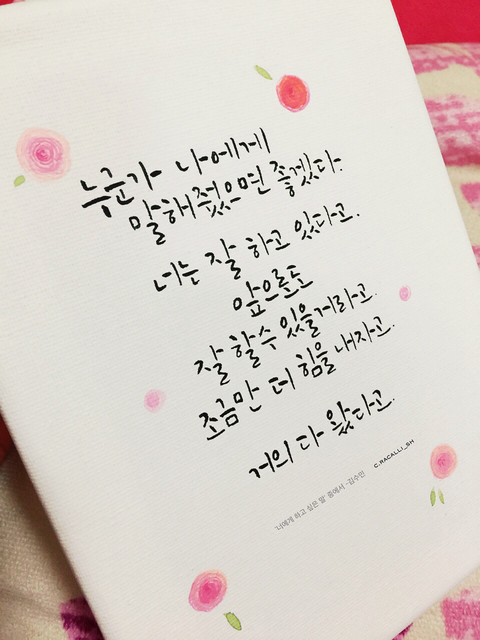 누군가 나에게
말해줬으면 좋겠다.
너는 잘 하고 있다고.
앞으로도
잘 할수 있을거라고.
조금만 더 힘을 내자고.
거의 다 왔다고.
'너에게 하고 싶은 말' 중에서 -김수민 C.RACALLI_SH